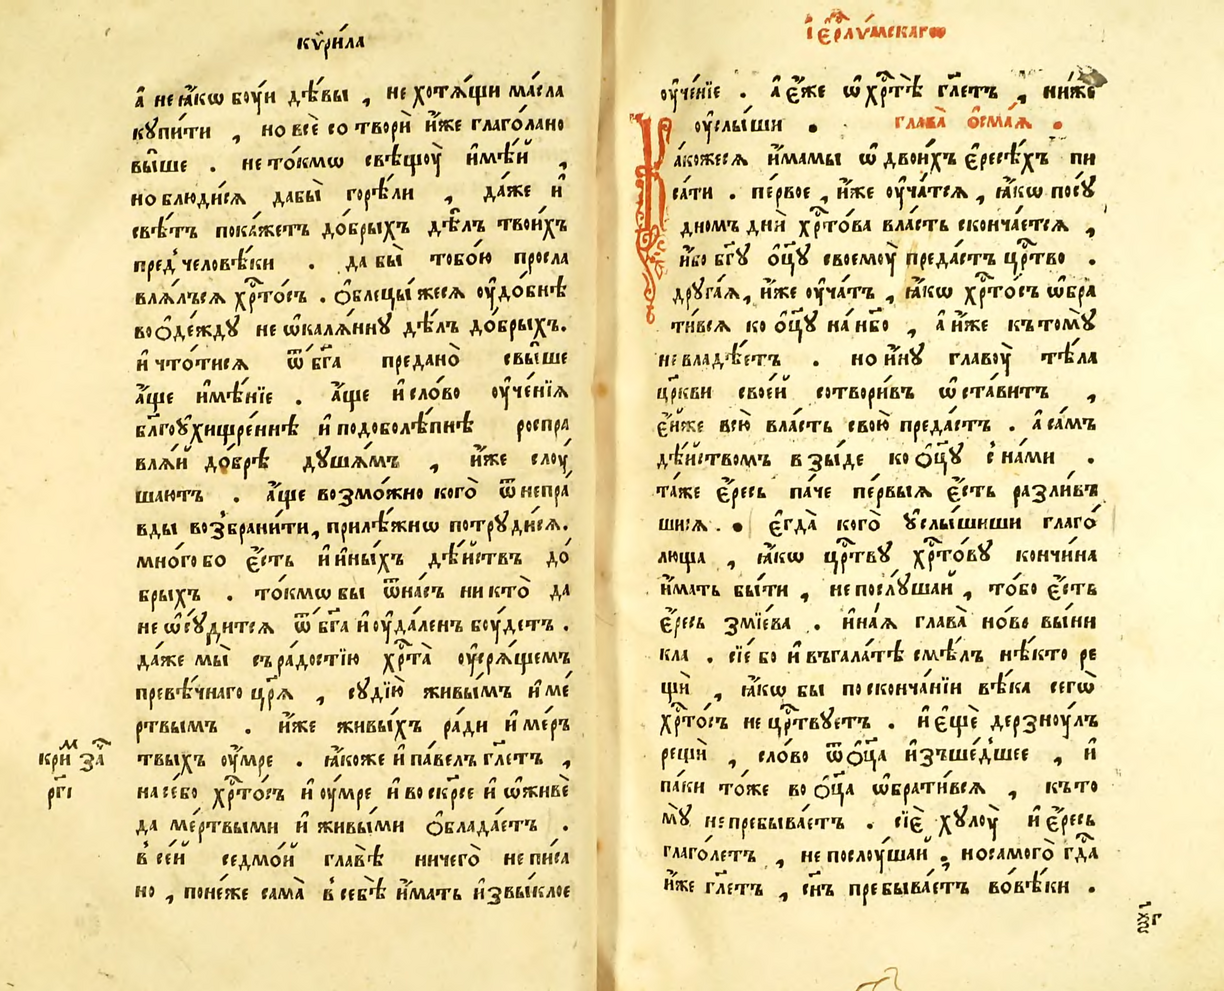 кѷри́ла
а҆ не ꙗ҆́кѡ боуи дѣ́вы , не хотѧ́щи ма́сла
кꙋпи́ти , но всѐ со творѝ и҆́же глаго́лано
вы́ше . не то́кмѡ свѣщоу̀ и҆мѣ́й ,
но блюди́сѧ дабы̀ горѣ́ли , да́же и҆
свѣ́тъ пока́жетъ до́брыхъ дѣ́лъ твои́хъ
пред̾ человѣ́ки . да бы̀ тобо́ю просла
влѧ́лъсѧ хрⷭ҇то́съ . ѻ҆блецы́ жесѧ оу҆до́бнѣ
во ѻ҆де́ждꙋ не ѡ҆калѧ́ннꙋ дѣ́лъ до́брыхъ.
и҆ что́ тисѧ ѿ бг҃а предано̀ свы́ше
а҆́ще и҆мѣ́нїе . а҆́ще и҆ сло́во оу҆че́нїѧ
бл҃гоꙋ҆хищре́ннѣ и҆ подоболѣ́пнѣ роспра
влѧ́й до́брѣ дꙋшѧ́мъ , и҆́же слоу
шаютъ . а҆́ще возмо́жно кого̀ ѿ непра
вды воз̾брани́ти, прилѣ́жнѡ потрꙋди́сѧ.
мно́го бо є҆́сть и҆ и҆ны́хъ дѣ́йствъ до́
брыхъ . то́кмѡ бы ѿ на́съ никто̀ да
не ѡ҆сꙋ́дитсѧ ѿ бг҃а и҆ оу҆да́ленъ боу́детъ .
да́же мы̀ съ ра́достїю хрⷭ҇та̀ оу҆срѧ́щемъ
превѣ́чнаго цр҃ѧ̀ , сꙋдїю̀ живы́мъ и҆ ме́
ртвымъ . и҆́же живы́хъ ра́ди и҆ ме́ръ
твыхъ оу҆́мре . ꙗ҆́коже и҆ па́велъ гл҃етъ ,
на се́бо хрⷭ҇то́съ и҆ оу҆́мре и҆ воскр҃се и҆ ѡ҆живѐ
да ме́ртвыми и҆ живы́ми ѻ҆блада́етъ .
в̾ се́й седмо́й главѣ̀ ничего̀ не писа
но , поне́же сама̀ в̾ себѣ̀ и҆́мать и҆звы́клое
кри́м за
рг҃і
і҆ерⷭ҇лꙋ́мскагѡ
оу҆че́нїе . а҆ є҆́же ѡ҆ хрⷭ҇тѣ̀ гл҃етъ , ни́же
оу҆слы́ши . глава̀ ѻ҆сма́ѧ .
Ꙗ҆́кожесѧ и҆́мамы ѡ҆ двои́хъ є҆ресѣ́хъ пи
са́ти . пе́рвое , и҆́же оу҆ча́тсѧ , ꙗ҆́кѡ по сꙋ́
дномъ днѝ хрⷭ҇то́ва вла́сть сконча́етсѧ ,
и҆́бо бг҃ꙋ ѻ҆ц҃ꙋ̀ своемоу̀ преда́стъ црⷭ҇тво .
дрꙋга́ѧ, и҆́же оу҆ча́тъ , ꙗ҆́кѡ хрⷭ҇то́съ ѡ҆бра
ти́всѧ ко ѻ҆ц҃ꙋ̀ на́ нб҃о , а҆ и҆́же к̾ томꙋ̀
не владѣ́етъ . но и҆́нꙋ главоу̀ тѣ́ла
цр҃кви свое́й сотвори́въ ѡ҆ста́витъ ,
є҆́йже всю̀ вла́сть свою̀ преда́стъ . а҆ са́мъ
дѣ́йствомъ взы́де ко ѻ҆ц҃ꙋ̀ с̾ на́ми .
та́же є҆́ресь па́че пе́рвыѧ є҆́сть разли́въ
шисѧ . є҆гда̀ кого̀ ꙋ҆слы́шиши глаго́
люща , ꙗ҆́кѡ црⷭ҇твꙋ хрⷭ҇то́вꙋ кончи́на
и҆́мать бы́ти , не послꙋ́шай , то́бо є҆́сть
є҆́ресь змїе́ва . и҆на́ѧ глава̀ но́во вы́ни
кла . сїе́ бо и҆ въ гала́тѣ смѣ́лъ нѣ́кто ре
щѝ , ꙗ҆́кѡ бы по сконча́нїи вѣ́ка сегѡ̀
хрⷭ҇то́съ не црⷭ҇твꙋетъ . и҆ є҆щѐ дерзноу́лъ
рещѝ , сло́во ѿ ѻ҆ц҃а̀ и҆зъше́дшее , и҆
па́ки то́же во ѻ҆ц҃а̀ ѡ҆брати́всѧ , къ то
мꙋ̀ не пребыва́етъ . сїѐ хꙋлоу̀ и҆ є҆́ресь
глаго́летъ , не послоу́шай , но самого̀ гдⷭ҇а
и҆́же гл҃етъ , сн҃ъ пребыва́етъ во́вѣки .